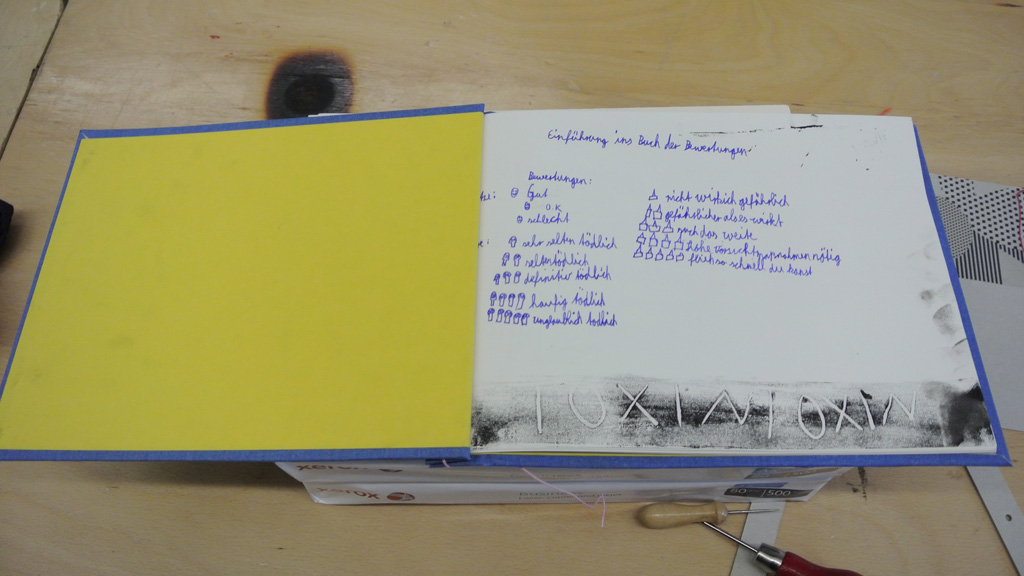 Einführung ins Buch der Bewertungen
Bewertungen:
Gut
O.K
schlecht
sehr selten tödlich
selten tödlich
definitiv tödlich
haufig tödlich
unglaublich tödlich
nicht wirklich gefährlich
gefährlicher als es wirkt
such das weite
hohe vorsichtsmaßnahmen nötig
flieh so schnell du kanst
TOXIN TOXIN
xerox
xerox
BUSINESS
80 500